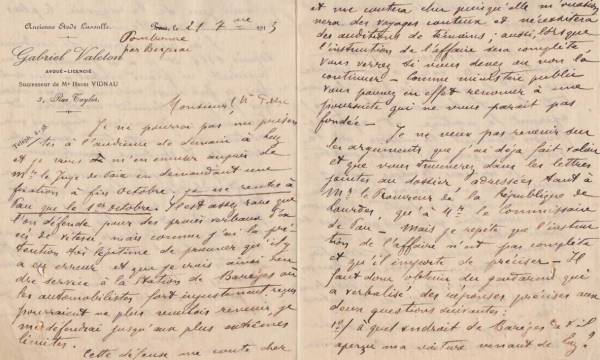 Ancienne Etude Lassalle
Gabriel Valeton
AVOUÉ-LICENCIÉ
Successeur de Me Henri VIGNAU
3, Rue Taylor
le 21 7bre 1913
par
Monsieur
Je ne pourrai pas me présen
ter à l'audience de demain à Luz
et je viens m'en excuser auprès de
Mr le Juge de Paix en demandant une
fixation à fin Octobre. Je ne rentre à
Pau que le 1er octobre. Il est assez rare que
l'on défende pour des procès verbaux d'ex
cès de vitesse, mais comme j'ai la pré
tention très légitime de prouver qu'il y
a eu erreur et que je crois ainsi ren
dre service à la station de Barèges où
les automobilistes fort injustement
pourraient ne plus vouloir revenir, je
me défendrai jusqu'aux plus extrêmes
limites.
Cette défense me coûte cher
et me coûtera cher puisqu'elle m'
nera des voyages coûteux et nécessitera
des auditions de témoins; aussi, lorsque
l'instruction de l'affaire sera complète,
vous verrez si vous devez ou non la
continuer - Comme ministère public
vous pouvez en effet renoncer à une
poursuite qui ne vous paraît pas
fondée -
Je ne veux pas revenir sur
les arguments que j'ai déjà fait valoir
et que vous trouverez dans les lettres
jointes au dossier, adressées tant à
Mr le Procureur de la République de
Lourdes, qu'à Mr le Commissaire
de Pau - Mais je répète que l'instruc
tion de l'affaire n'est pas complète
et qu'il importe de préciser - Il
faut donc obtenir du gendarme qui
a verbalisé, des réponses précises aux
deux questions suivantes:
1° à quel endroit de Barèges a-t-il
aperçu ma voiture venant de Luz?